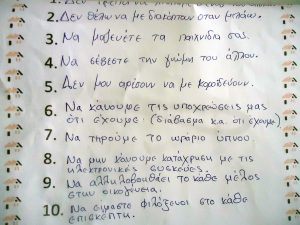 2. Δεν θέλω να με διακόπτουν όταν μιλάω.
3. Να μαζεύετε τα παιχνίδια σας.
4. Να σέβεστε την γνώμη του άλλου.
5. Δεν μου αρέσουν να με κοροϊδεύουν.
6. Να κάνουμε τις υποχρεώσεις μας
ότι έχουμε (διάβασμα κ.α. ότι έχουμε)
7. Να τηρούμε το ωράριο ύπνου.
8. Να μην κάνουμε κατάχρηση με τις
ηλεκτρονικές συσκευές.
9. Να αλληλοβοηθιέται το κάθε μέλος
στην οικογένεια.
10. Να είμαστε φιλόξενοι στο κάθε
επισκέπτη.